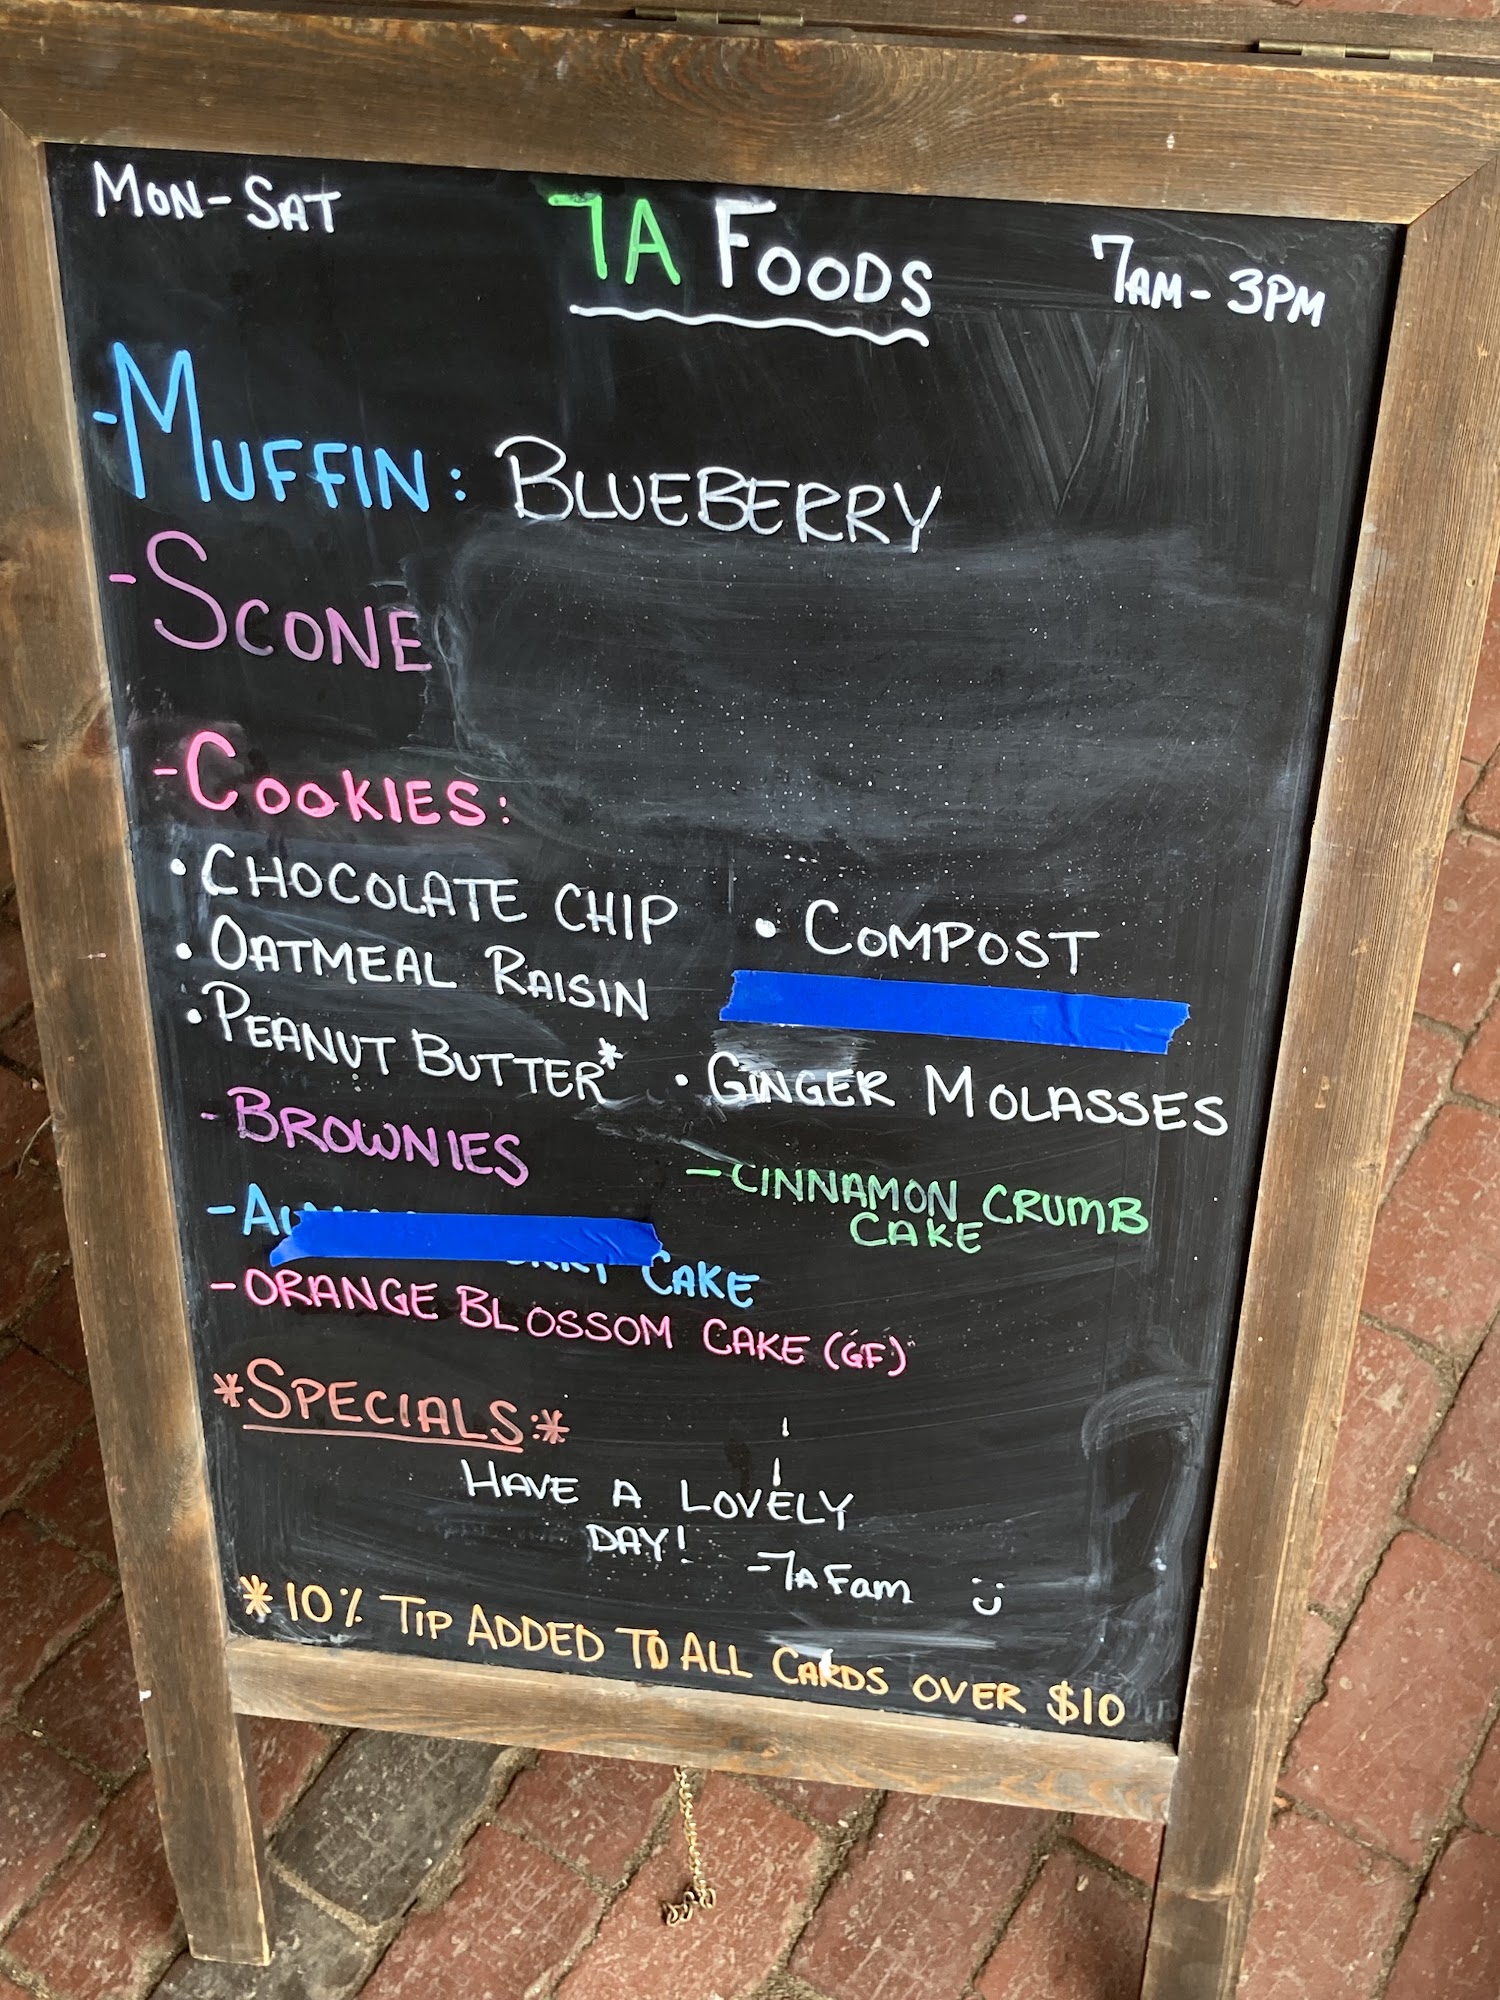 MON-SAT
7A FOODS
7AM-3PM
-MUFFIN: BLUEBERRY
-SCONE
-COOKIES:
• CHOCOLATE CHIP
• COMPOST
• OATMEAL RAISIN
• PEANUT BUTTER*
• GINGER MOLASSES
-BROWNIES
-CINNAMON CRUMB
CAKE
- CAKE
-ORANGE BLOSSOM CAKE (GF)
*SPECIALS:*
HAVE A LOVELY
DAY!
-7A Fam
*10% TIP ADDED TO ALL CARDS OVER $10